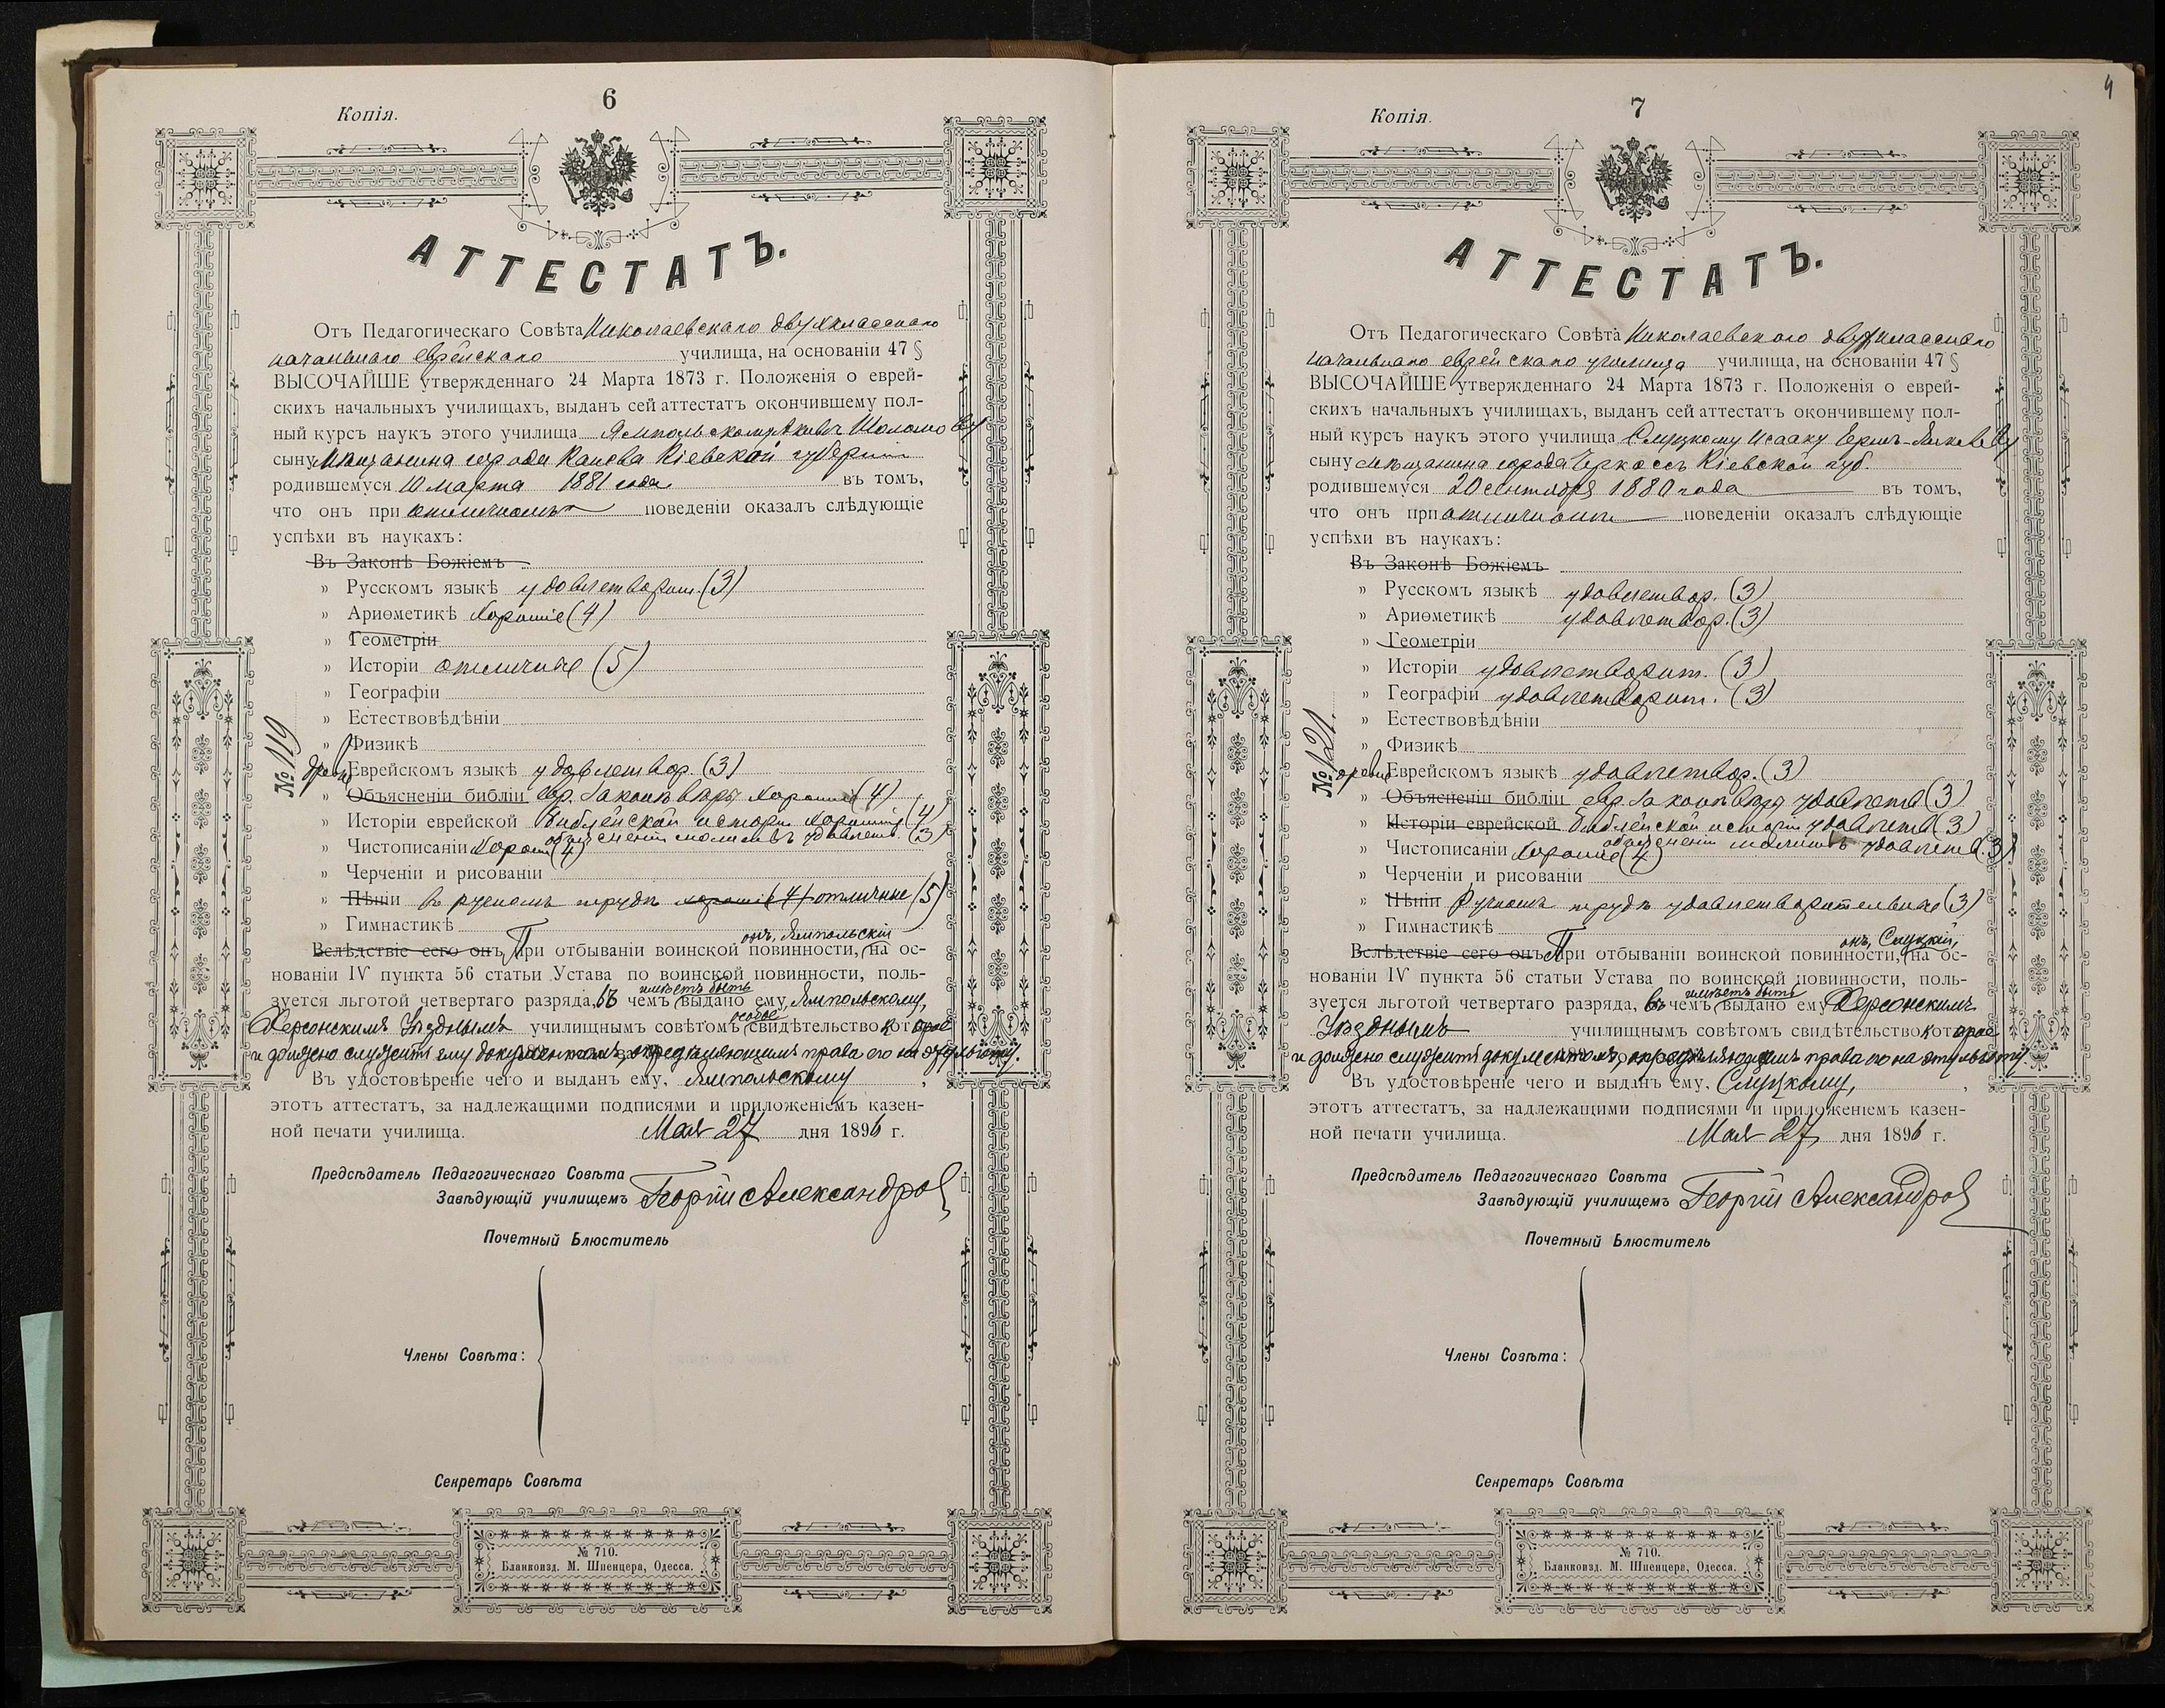 6
Копія.
АТТЕСТАТЪ.
Отъ Педагогическаго Совѣта Николаевскаго двухкласснаго
начальнаго еврейскаго училища, на основаніи 47 §
ВЫСОЧАЙШЕ утвержденнаго 24 Марта 1873 г. Положенія о еврей-
скихъ начальныхъ училищахъ, выданъ сей аттестатъ окончившему пол-
ный курсъ наукъ этого училища Ямпольскому Шоломову
сыну мѣщанина города Канева Кіевской губерніи
родившемуся 10 марта 1881 года въ томъ,
что онъ при отличномъ поведеніи оказалъ слѣдующіе
успѣхи въ наукахъ:
Въ Законѣ Божіемъ
» Русскомъ языкѣ удовлетворит. (3)
» Ариѳметикѣ хорошіе (4)
» Геометріи
» Исторіи отличные (5)
» Географіи
» Естествовѣдѣніи
» Физикѣ
№ 119
древн Еврейскомъ языкѣ удовлетвор. (3)
» Объясненіи библіи евр. Законѣ вѣры хорошіе (4)
» Исторіи еврейской библейской исторіи хорошіе (4)
объясненіи молитвъ удовлетв. (3)
» Чистописаніи хорош (4)
» Черченіи и рисованіи
» Пѣніи въ ручномъ трудѣ хорошіе (4) отличные (5)
» Гимнастикѣ
онъ, Ямпольскій
Вслѣдствіе сего онъ При отбываніи воинской повинности, на ос-
нованіи IV пункта 56 статьи Устава по воинской повинности, поль-
имѣетъ быть
зуется льготой четвертаго разряда, въ чемъ выдано ему, Ямпольскому,
особое
Херсонскимъ Уѣзднымъ училищнымъ совѣтомъ свидѣтельство которое
и должно служить ему документомъ, опредѣляющимъ права его на эту льготу.
Въ удостовѣреніе чего и выданъ ему, Ямпольскому,
этотъ аттестатъ, за надлежащими подписями и приложеніемъ казен-
ной печати училища. Мая 27 дня 1896 г.
Предсѣдатель Педагогическаго Совѣта
Завѣдующій училищемъ Георгій Александров
Почетный Блюститель
Члены Совѣта:
Секретарь Совѣта
№ 710.
Бланкоизд. М. Шпенцера, Одесса.
4
7
Копія.
АТТЕСТАТЪ.
Отъ Педагогическаго Совѣта Николаевскаго двухкласснаго
начальнаго еврейскаго училища училища, на основаніи 47 §
ВЫСОЧАЙШЕ утвержденнаго 24 Марта 1873 г. Положенія о еврей-
скихъ начальныхъ училищахъ, выданъ сей аттестатъ окончившему пол-
ный курсъ наукъ этого училища Слуцкому Исааку Бершъ-Лейбову
сыну мѣщанина города Черкассъ Кіевской губ.
родившемуся 20 сентября 1880 года въ томъ,
что онъ при отличномъ поведеніи оказалъ слѣдующіе
успѣхи въ наукахъ:
Въ Законѣ Божіемъ
» Русскомъ языкѣ удовлетвор. (3)
» Ариѳметикѣ удовлетвор. (3)
» Геометріи
» Исторіи удовлетворит. (3)
» Географіи удовлетворит. (3)
» Естествовѣдѣніи
» Физикѣ
№ 121.
древне Еврейскомъ языкѣ удовлетвор. (3)
» Объясненіи библіи евр. Законѣ вѣры удовлетв (3)
» Исторіи еврейской библейской исторіи удовлетв (3)
объясненіи молитвъ удовлетв. (3)
» Чистописаніи хорошіе (4)
» Черченіи и рисованіи
» Пѣніи Ручномъ трудѣ удовлетворительные (3)
» Гимнастикѣ
онъ, Слуцкій,
Вслѣдствіе сего онъ При отбываніи воинской повинности, на ос-
нованіи IV пункта 56 статьи Устава по воинской повинности, поль-
имѣетъ быть
зуется льготой четвертаго разряда, въ чемъ выдано ему Херсонскимъ
Уѣзднымъ училищнымъ совѣтомъ свидѣтельство которое
и должно служить документомъ, опредѣляющимъ права его на эту льготу.
Въ удостовѣреніе чего и выданъ ему, Слуцкому,
этотъ аттестатъ, за надлежащими подписями и приложеніемъ казен-
ной печати училища. Мая 27 дня 1896 г.
Предсѣдатель Педагогическаго Совѣта
Завѣдующій училищемъ Георгій Александров
Почетный Блюститель
Члены Совѣта:
Секретарь Совѣта
№ 710.
Бланкоизд. М. Шпенцера, Одесса.